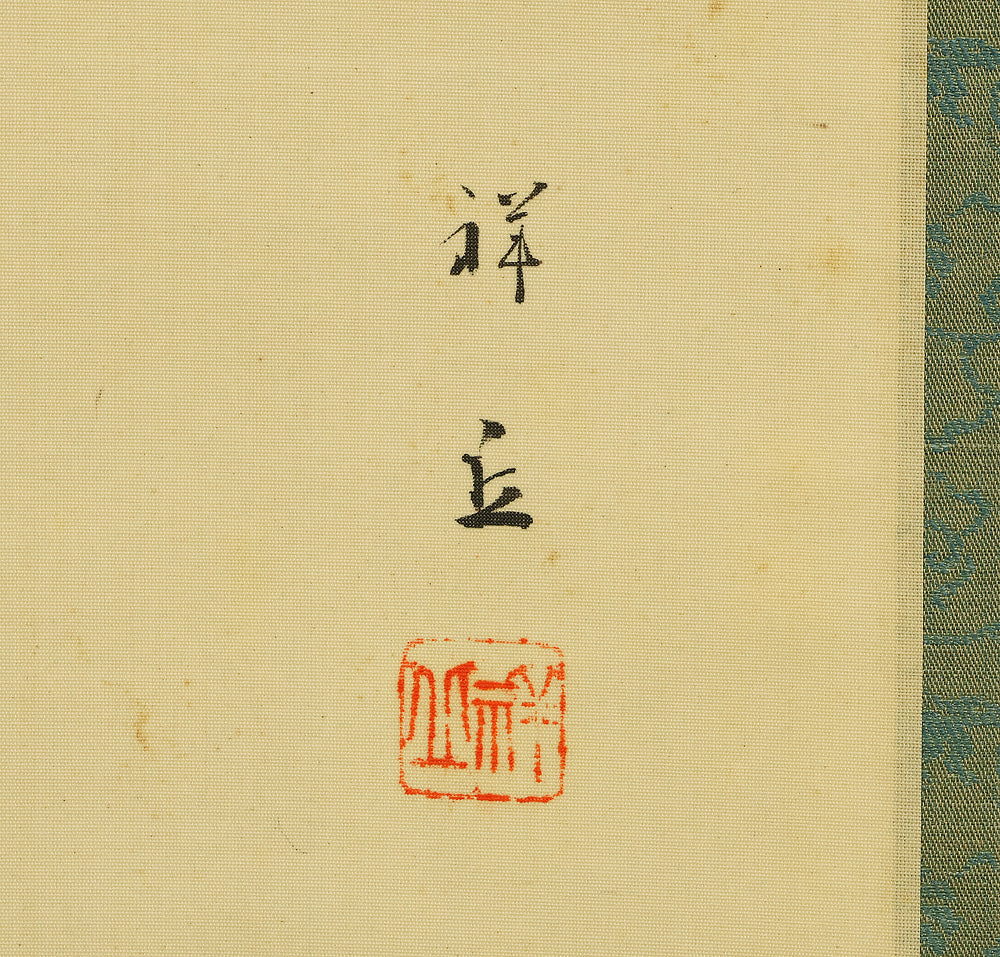 祥丘
祥丘